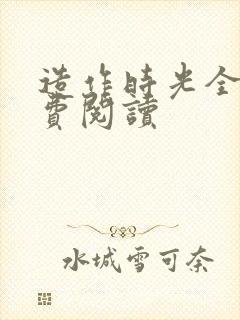 造作時光全
費閱讀
水城雪可奈